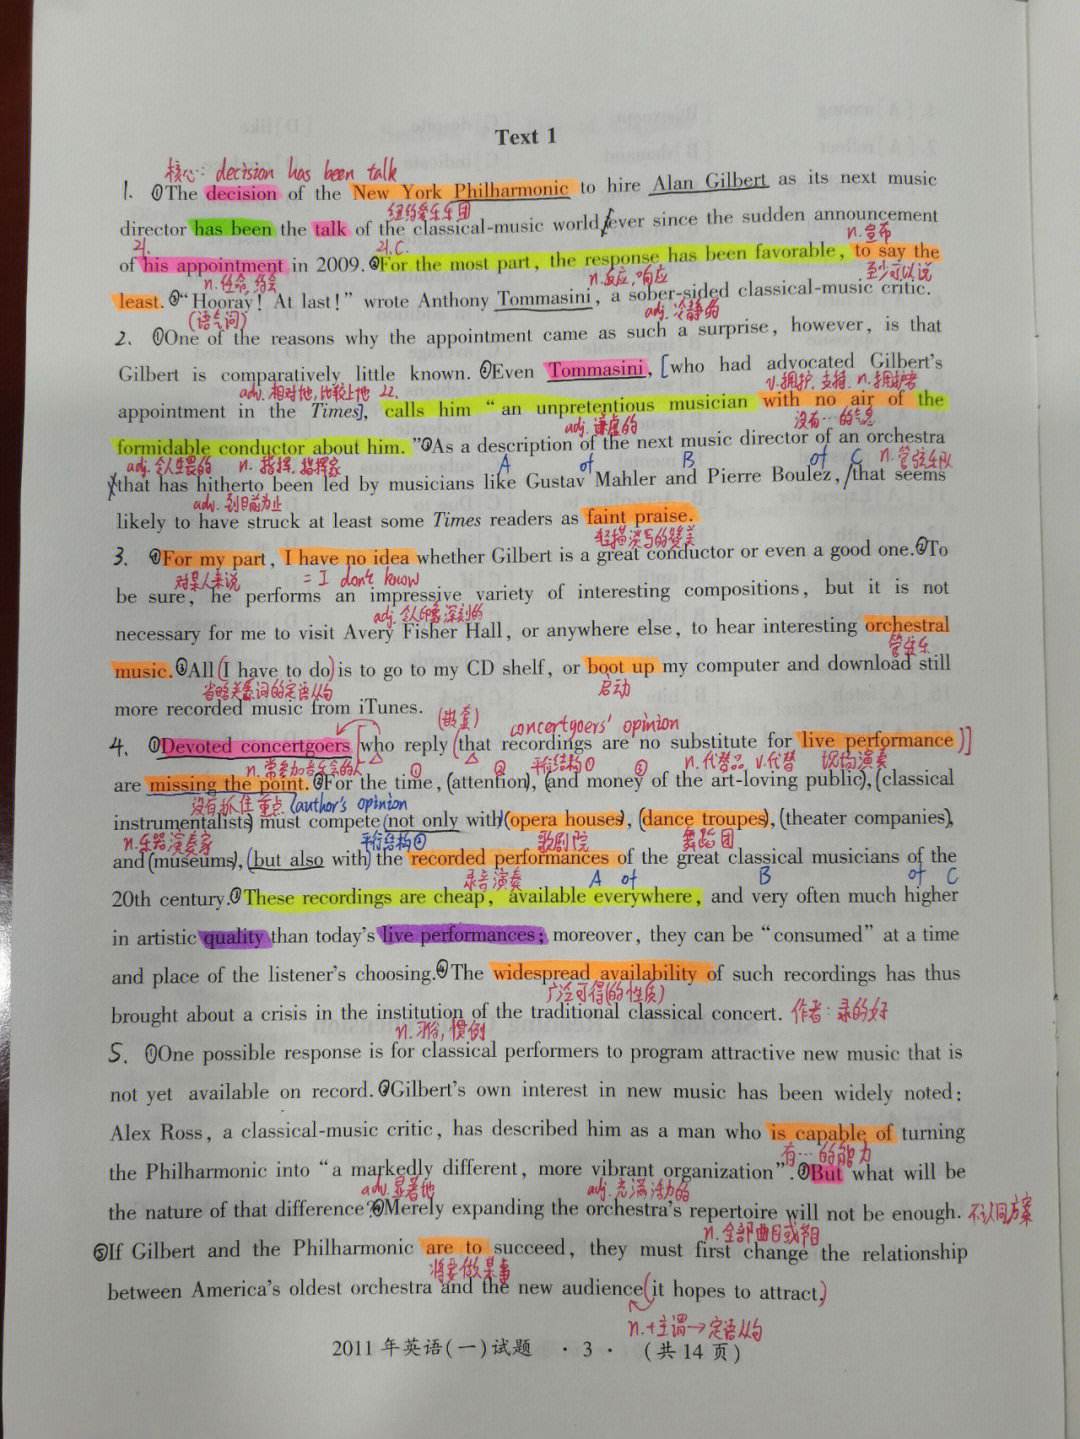 Text 1
核心: decision has been talk
1. ①The decision of the New York Philharmonic to hire Alan Gilbert as its next music
纽约爱乐乐团
director has been the talk of the classical-music world, ever since the sudden announcement
21. 21.C. n.宣布
of his appointment in 2009. ②For the most part, the response has been favorable, to say the
n.任命, 约会 n.反应,响应 至少可以说
least. ③“Hooray! At last!” wrote Anthony Tommasini, a sober-sided classical-music critic.
(语气词) adj.冷静的
2. ①One of the reasons why the appointment came as such a surprise, however, is that
Gilbert is comparatively little known. ②Even Tommasini, [who had advocated Gilbert's
adv.相对地,比较上地 22. v.拥护,支持. n.拥护者
appointment in the Times], calls him “an unpretentious musician with no air of the
adj.谦虚的 没有…的气息
formidable conductor about him.”③As a description of the next music director of an orchestra
adj.令人生畏的 n.指挥,指挥家 A of B of C n.管弦乐队
that has hitherto been led by musicians like Gustav Mahler and Pierre Boulez, that seems
adv.到目前为止
likely to have struck at least some Times readers as faint praise.
轻描淡写的赞美
3. ①For my part, I have no idea whether Gilbert is a great conductor or even a good one.②To
对某人来说 = I don't know
be sure, he performs an impressive variety of interesting compositions, but it is not
adj.令人印象深刻的
necessary for me to visit Avery Fisher Hall, or anywhere else, to hear interesting orchestral
管弦乐
music.③All (I have to do) is to go to my CD shelf, or boot up my computer and download still
省略关系词的定语从句 启动
more recorded music from iTunes.
(嵌套) concertgoers' opinion
4. ①Devoted concertgoers [who reply (that recordings are no substitute for live performance)]
n.常参加音乐会的人 ① ② 平行结构① ③ n.代替品 v.代替 现场演奏
are missing the point. ②For the time, (attention), (and money of the art-loving public), (classical
没有抓住重点 (author's opinion
instrumentalists) must compete (not only with) (opera houses), (dance troupes), (theater companies),
n.乐器演奏家 平行结构② 歌剧院 舞蹈团
and (museums), (but also with) the recorded performances of the great classical musicians of the
录音演奏 A of B of C
20th century.③These recordings are cheap, available everywhere, and very often much higher
in artistic quality than today's live performances; moreover, they can be “consumed” at a time
and place of the listener's choosing.④The widespread availability of such recordings has thus
广泛可得(的性质)
brought about a crisis in the institution of the traditional classical concert. 作者: 录的好
n.习俗,惯例
5. ①One possible response is for classical performers to program attractive new music that is
not yet available on record. ②Gilbert's own interest in new music has been widely noted:
Alex Ross, a classical-music critic, has described him as a man who is capable of turning
有…的能力
the Philharmonic into “a markedly different, more vibrant organization”. ③But what will be
adv.显著地 adj.充满活力的
the nature of that difference? ④Merely expanding the orchestra's repertoire will not be enough. 不认同方案
n.全部曲目或节目
⑤If Gilbert and the Philharmonic are to succeed, they must first change the relationship
将要做某事
between America's oldest orchestra and the new audience (it hopes to attract.)
n.+主谓→定语从句
2011年英语(一)试题 · 3 · (共14页)